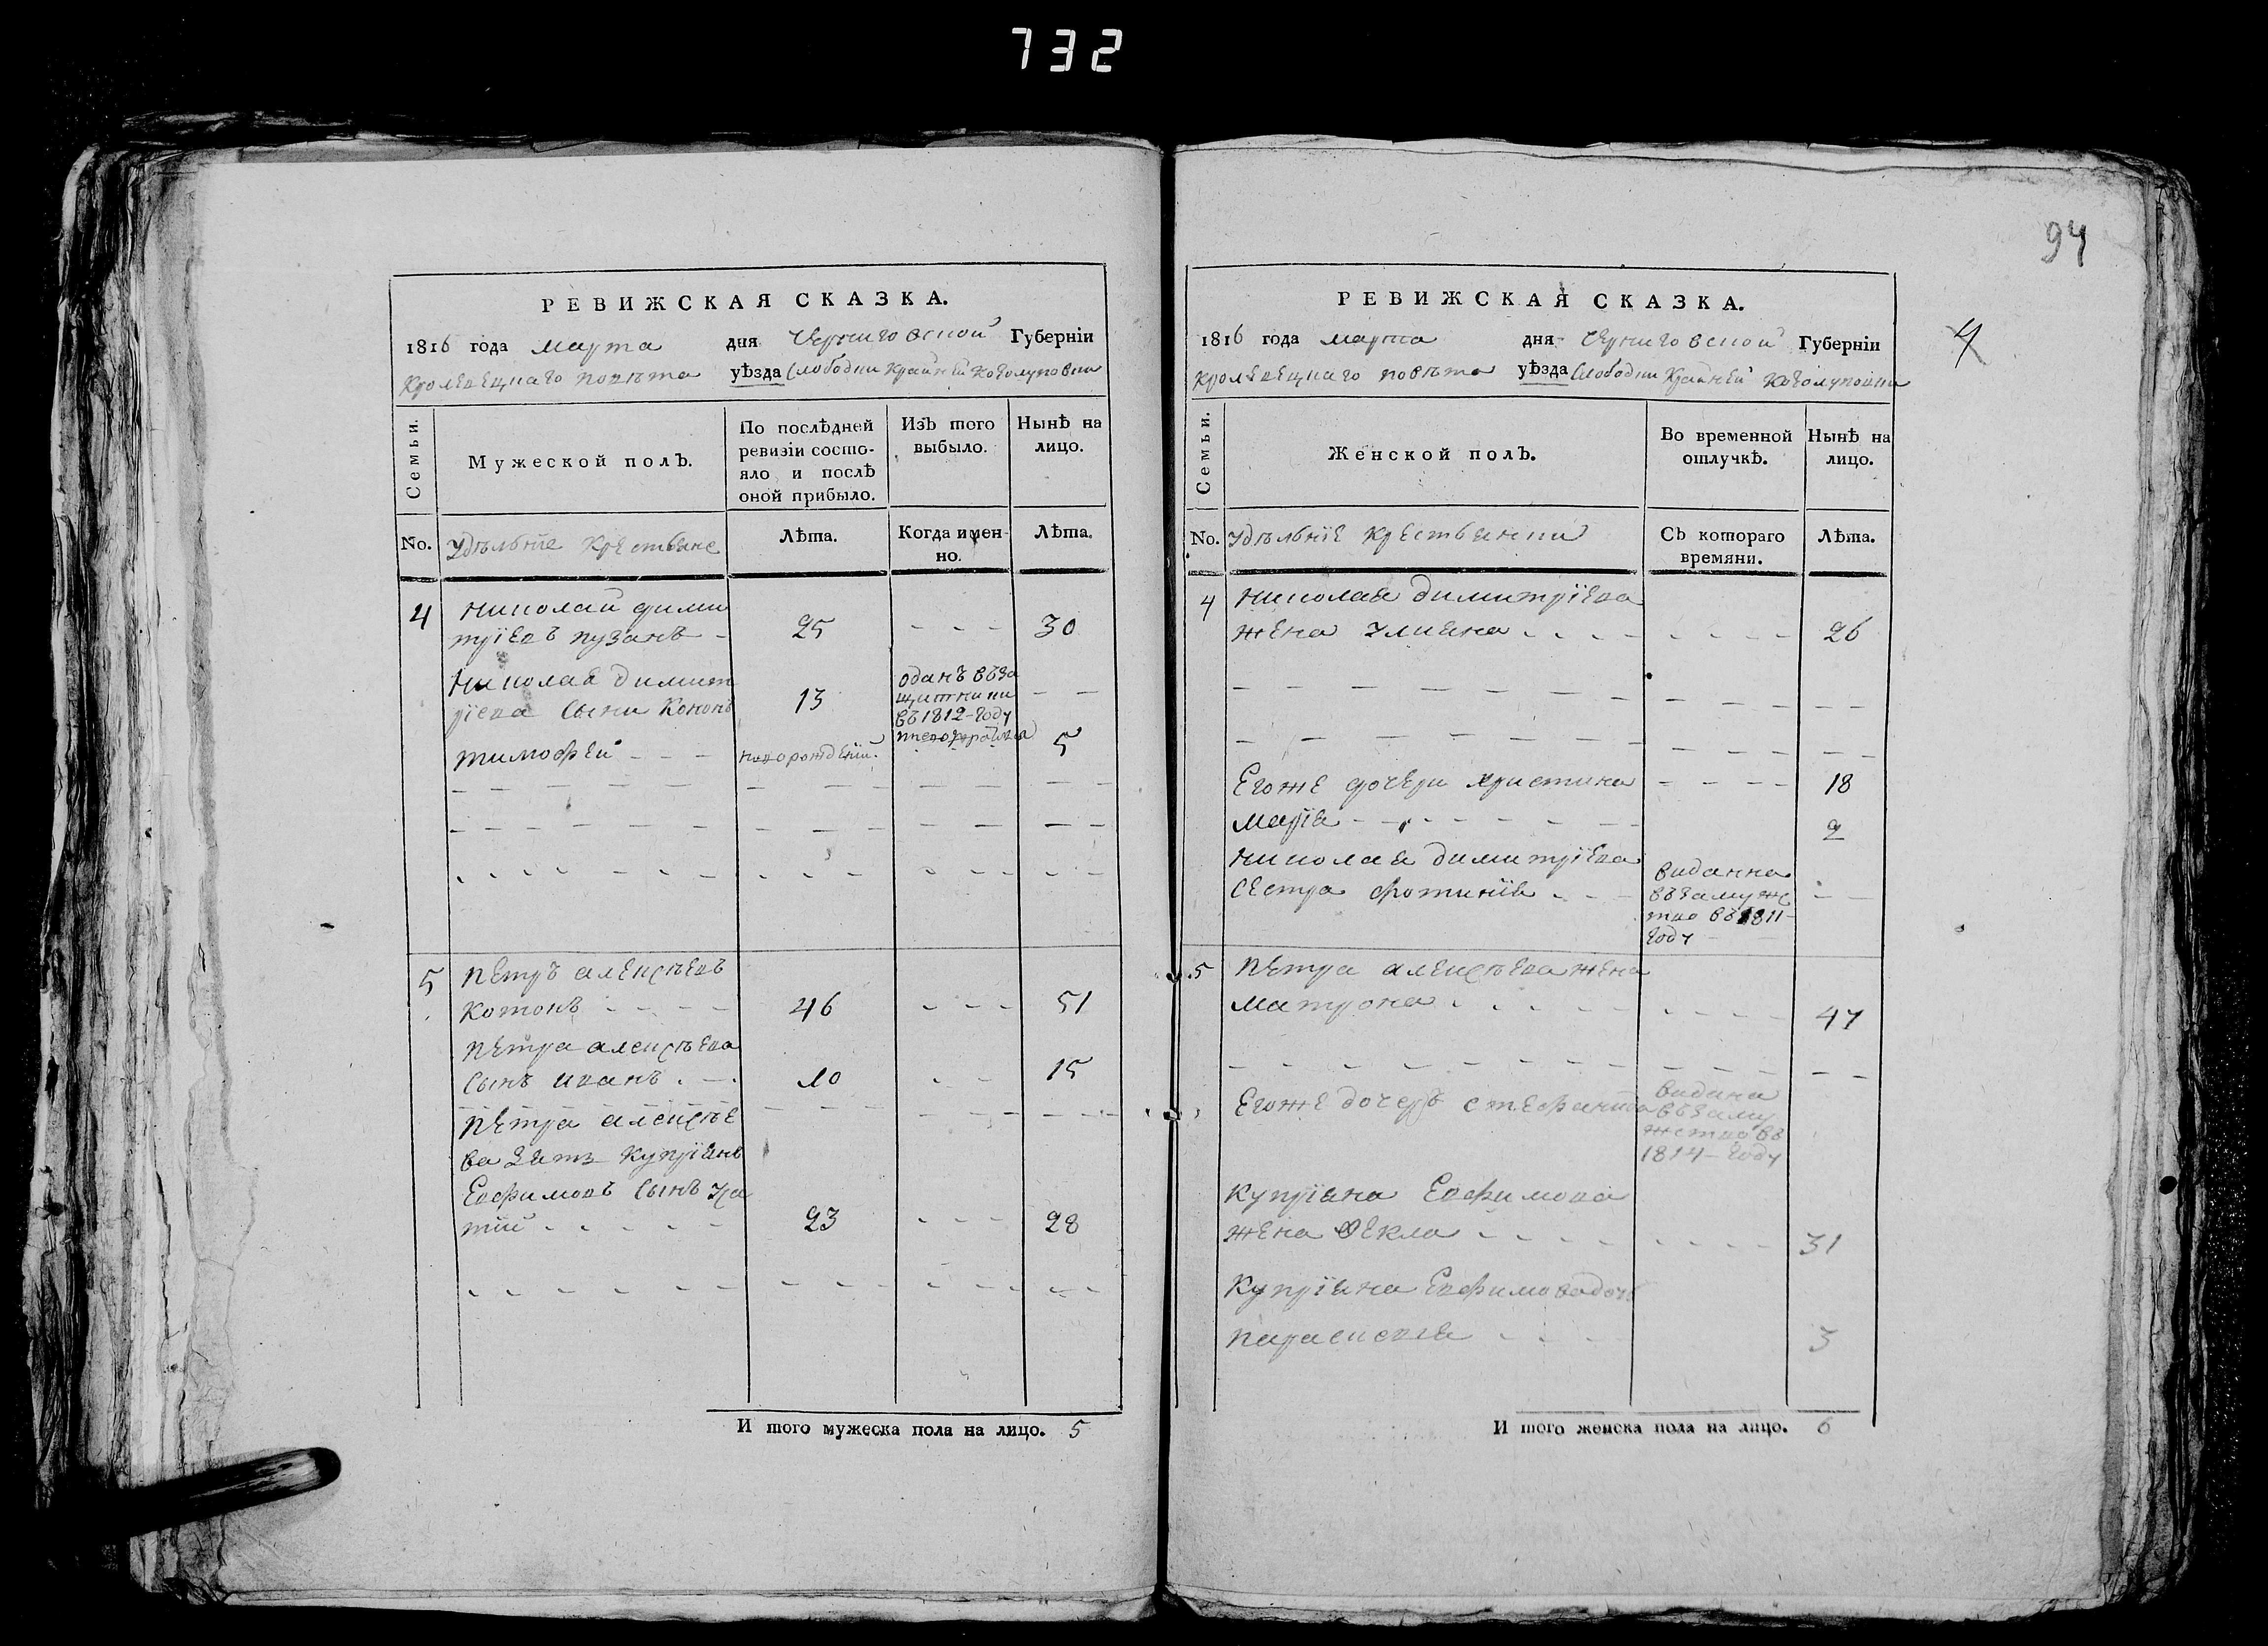 732
94
4
РЕВИЖСКАЯ СКАЗКА.
1816 года марта дня Черниговской Губерніи
Кролевецкаго повѣта уѣзда Слободки Крайней
Семьи.
Мужеской полъ.
По послѣдней ревизіи состо-
яло и послѣ
оной прибыло.
Изъ того
выбыло.
Нынѣ на
лицо.
No. Удѣльніе Крестьяне
Лѣта.
Когда имен-
но.
Лѣта.
4 Николай дими
тріевъ пузанъ - 25 - - - 30
Николая димит
ріева сыни Кононъ 13
въ 1812-году - -
тимофей - - - новорожденій. 5
5 Петръ алексѣевъ
котонъ - - - - 46 - - - 51
Петра алексѣева
сынъ иванъ . - . 10 - - 15
Петра алексѣе
ва зять Купріянъ
Евфимовъ сынъ
23 - - - 28
И того мужеска пола на лицо. 5
РЕВИЖСКАЯ СКАЗКА.
1816 года марта дня Черниговской Губерніи
Кролевецкаго повѣта уѣзда Слободки Крайней
Семьи.
Женской полъ.
Во временной
отлучкѣ.
Нынѣ на
лицо.
No. Удѣльніе Крестьянки
Съ котораго
времяни.
Лѣта.
4 Николая димитріева
жена Улияна - - - - - - - - 26
Егоже дочери христина - - - - 18
Марія - - - - - - - 2
Николая димитріева
сестра фотинія - - -
виданна
въ замуж
тво въ 1811-
году
5 Петра алексѣева жена
матрона - - - - - - - - - 47
Егоже дочеръ
видана
въ заму
жство въ
1814-году
Купріяна Евфимова
жена Ѳекла - - - - - - - - 31
Купріяна Евфимова дочъ
параскевія - - - - 3
И того женска пола на лицо. 6